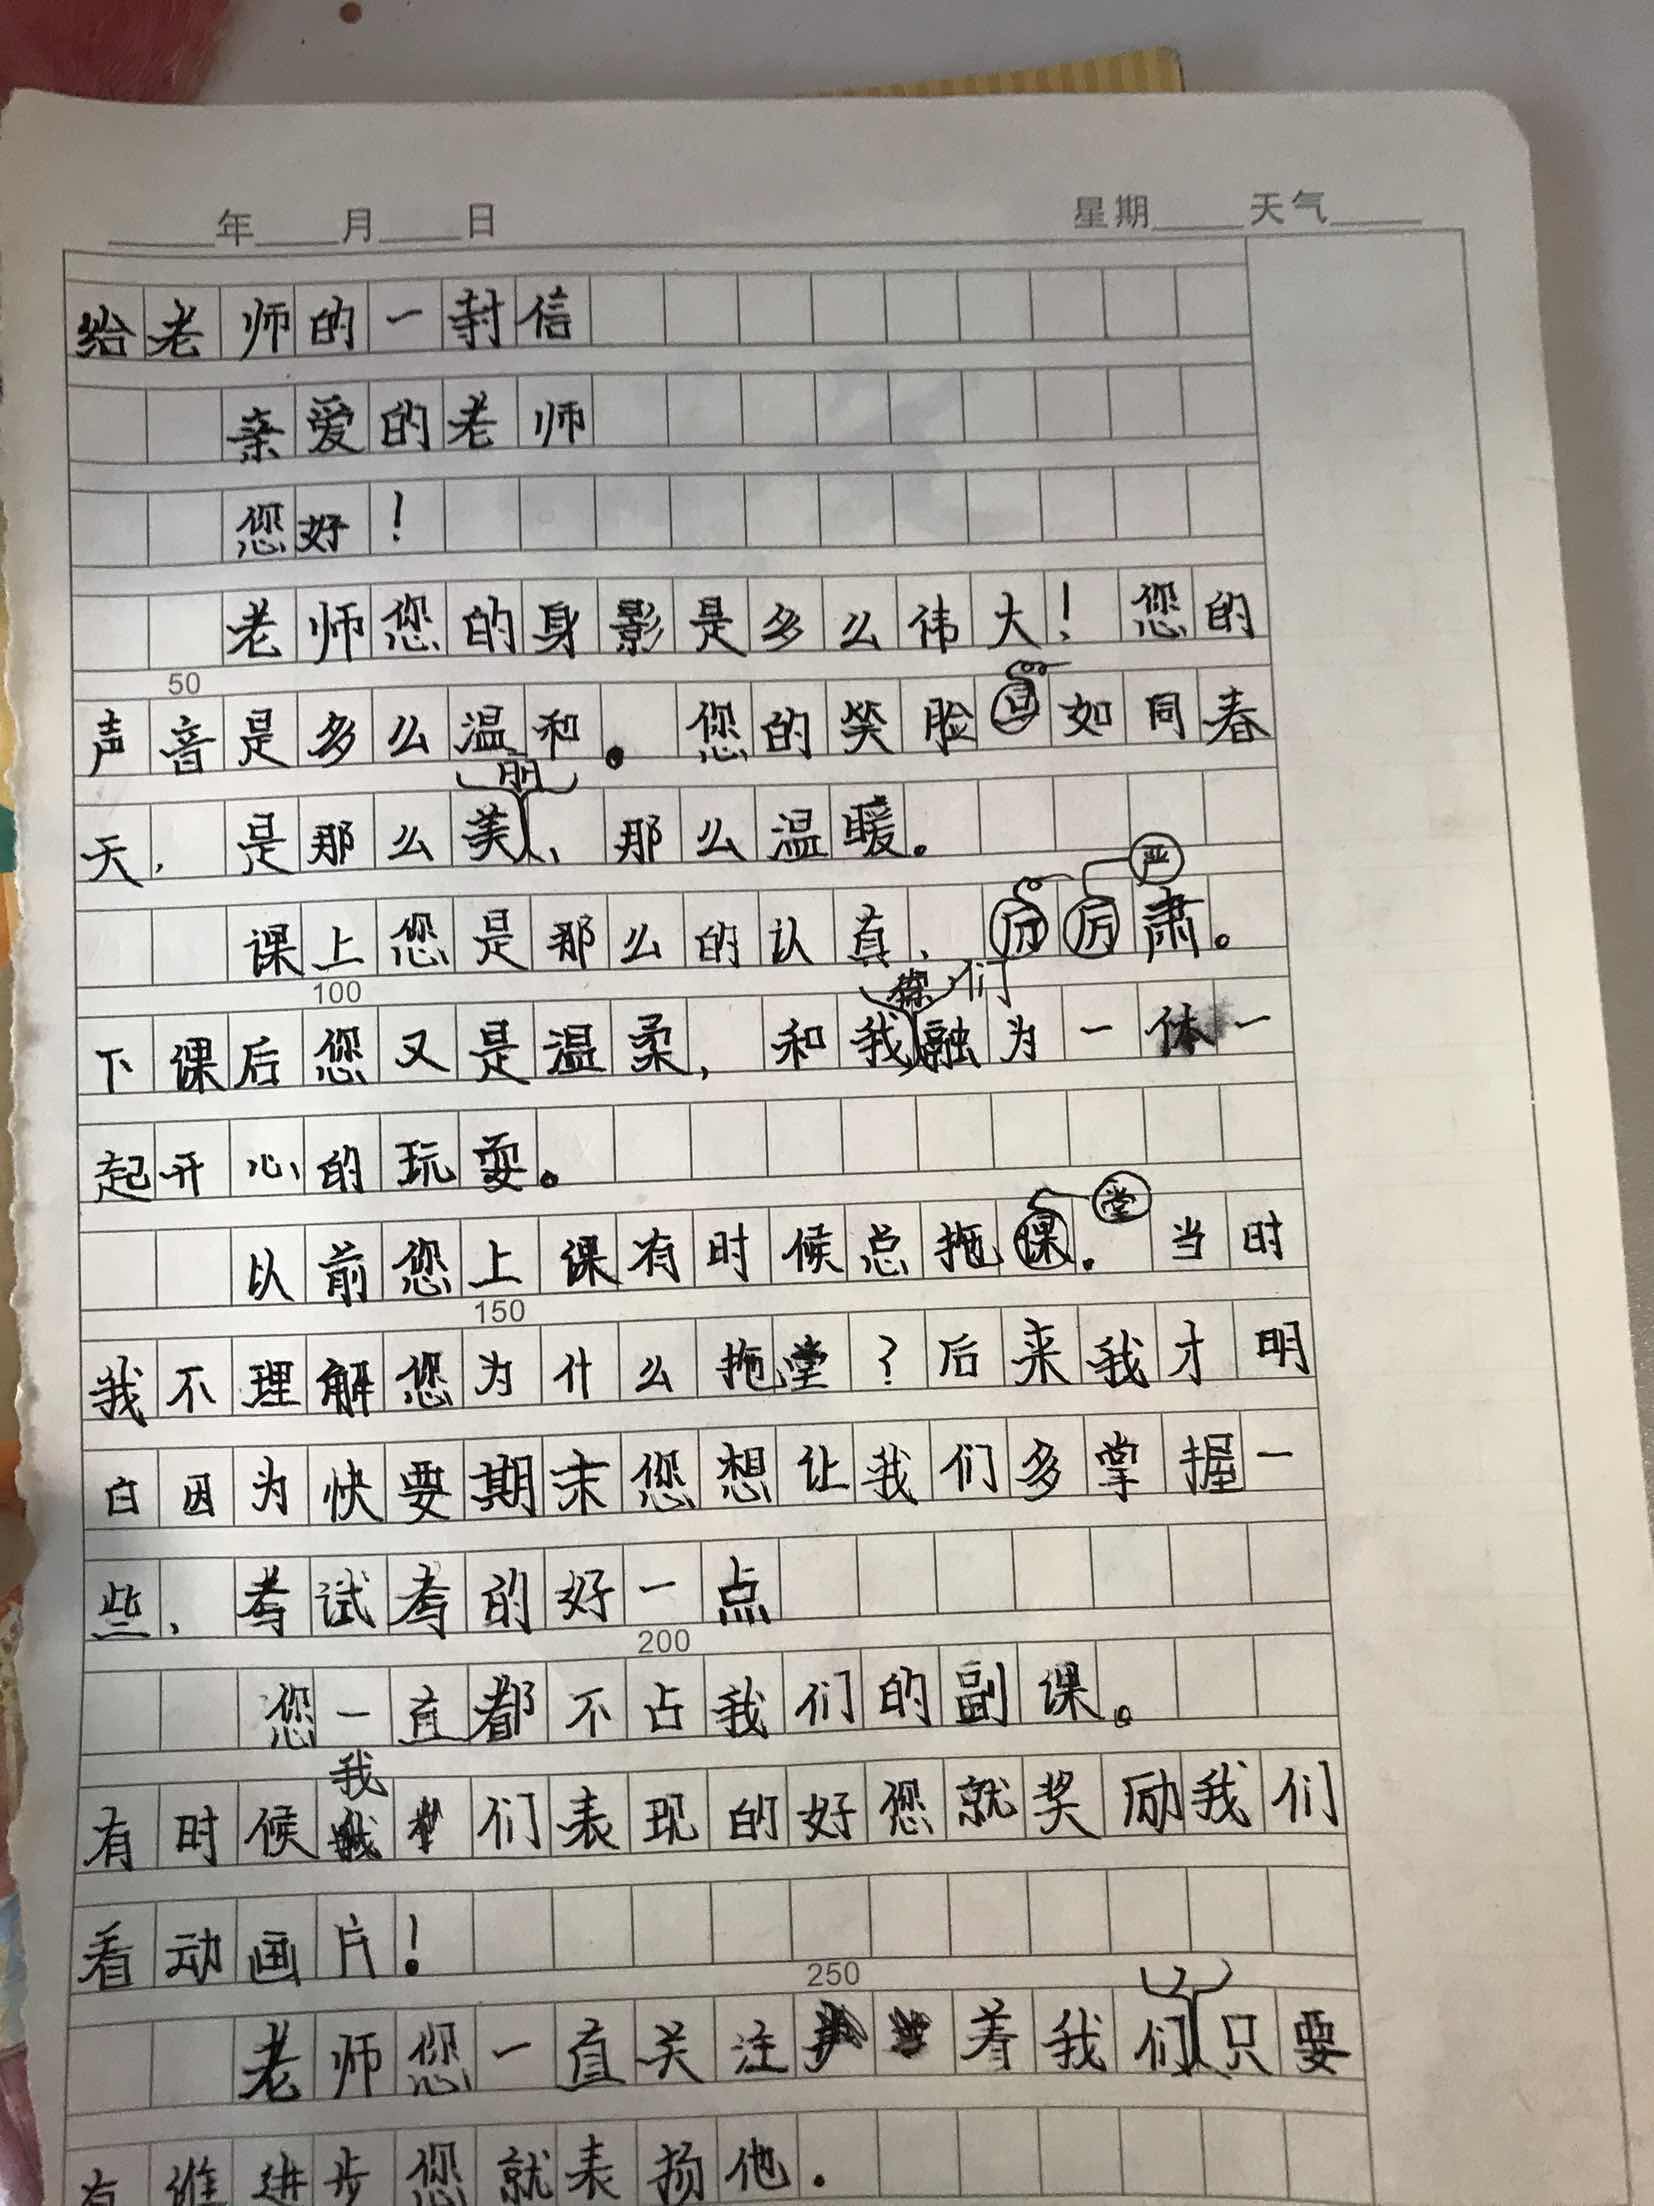 年 月 日 星期 天气
给老师的一封信
亲爱的老师
您好！
老师您的身影是多么伟大！您的
50
声音是多么温和。您的笑脸如同春
天，是那么美丽、那么温暖。
课上您是那么的认真、严肃。
100
下课后您又是温柔，和我们融为一体一
起开心的玩耍。
以前您上课有时候总拖堂。当时
150
我不理解您为什么拖堂？后来我才明
白因为快要期末您想让我们多掌握一
些，考试考的好一点
200
您一直都不占我们的副课。
有时候我们表现的好您就奖励我们
看动画片！
250
老师您一直关注着我们，只要
有谁进步您就表扬他。